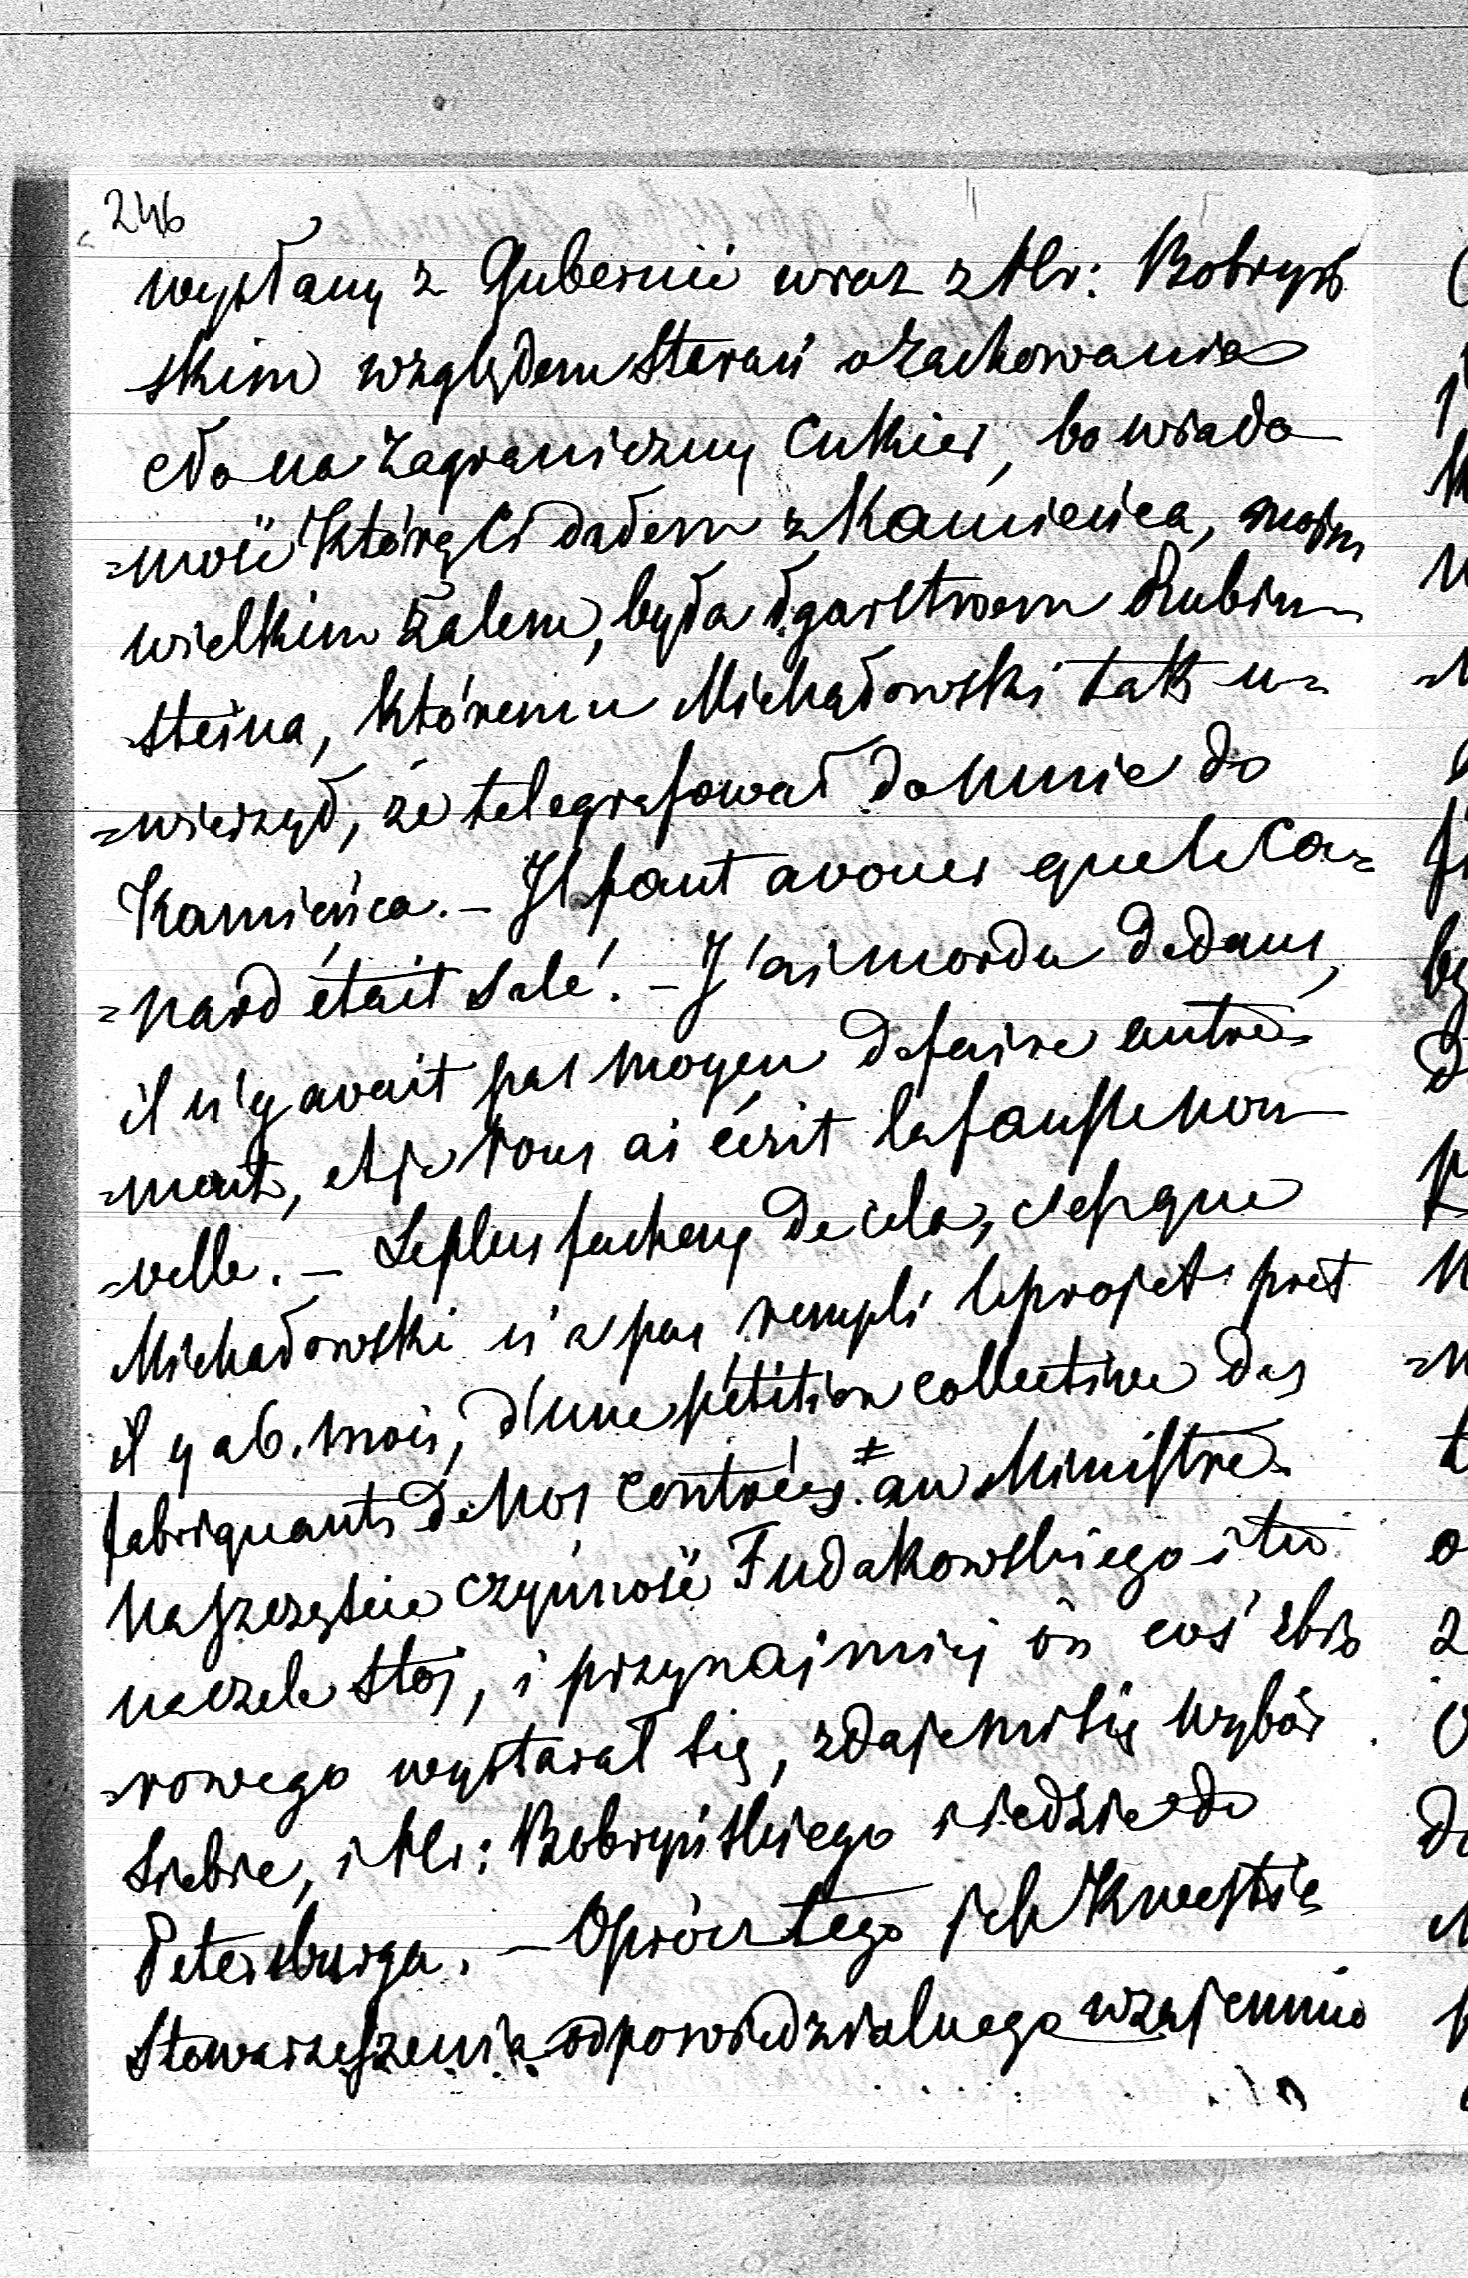 246
wysłany z Gubernii wraz z Hr: Bobryń
skim względem starań o zachowanie
cła na zagraniczny cukier, bo wiado
=mość którą Ci dałem z Kamieńca, moim
wielkim żalem, była łgarstwem Rubin
steina, któremu Michałowski tak u=
=wierzył, że telegrafował do mnie do
Kamieńca. – Il faut avouer que le ca=
=nard était salé. – J'ai mordu dedans,
il n'y avait pas moyen de faire autre=
=ment, et je vous ai écrit la fausse nou
=velle. – Le plus facheux de cela, c'est que
Michałowski n'a pas rempli le projet pret
il y a 6. mois, d'une pétition collective des
fabriquants de nos contrées ≠ au Ministre.
Na szczęście czynność Fudakowskiego i tu
na czele stoi, i przynajmniej ón coś zbio
=rowego wystarał się, zdaje mi się wybór
siebie, i Hr: Bobryńskiego i jedzie do
Petersburga. – Oprócz tego ich kwestię
Stowarzyszenia odpowiedzialnego wzajemnie